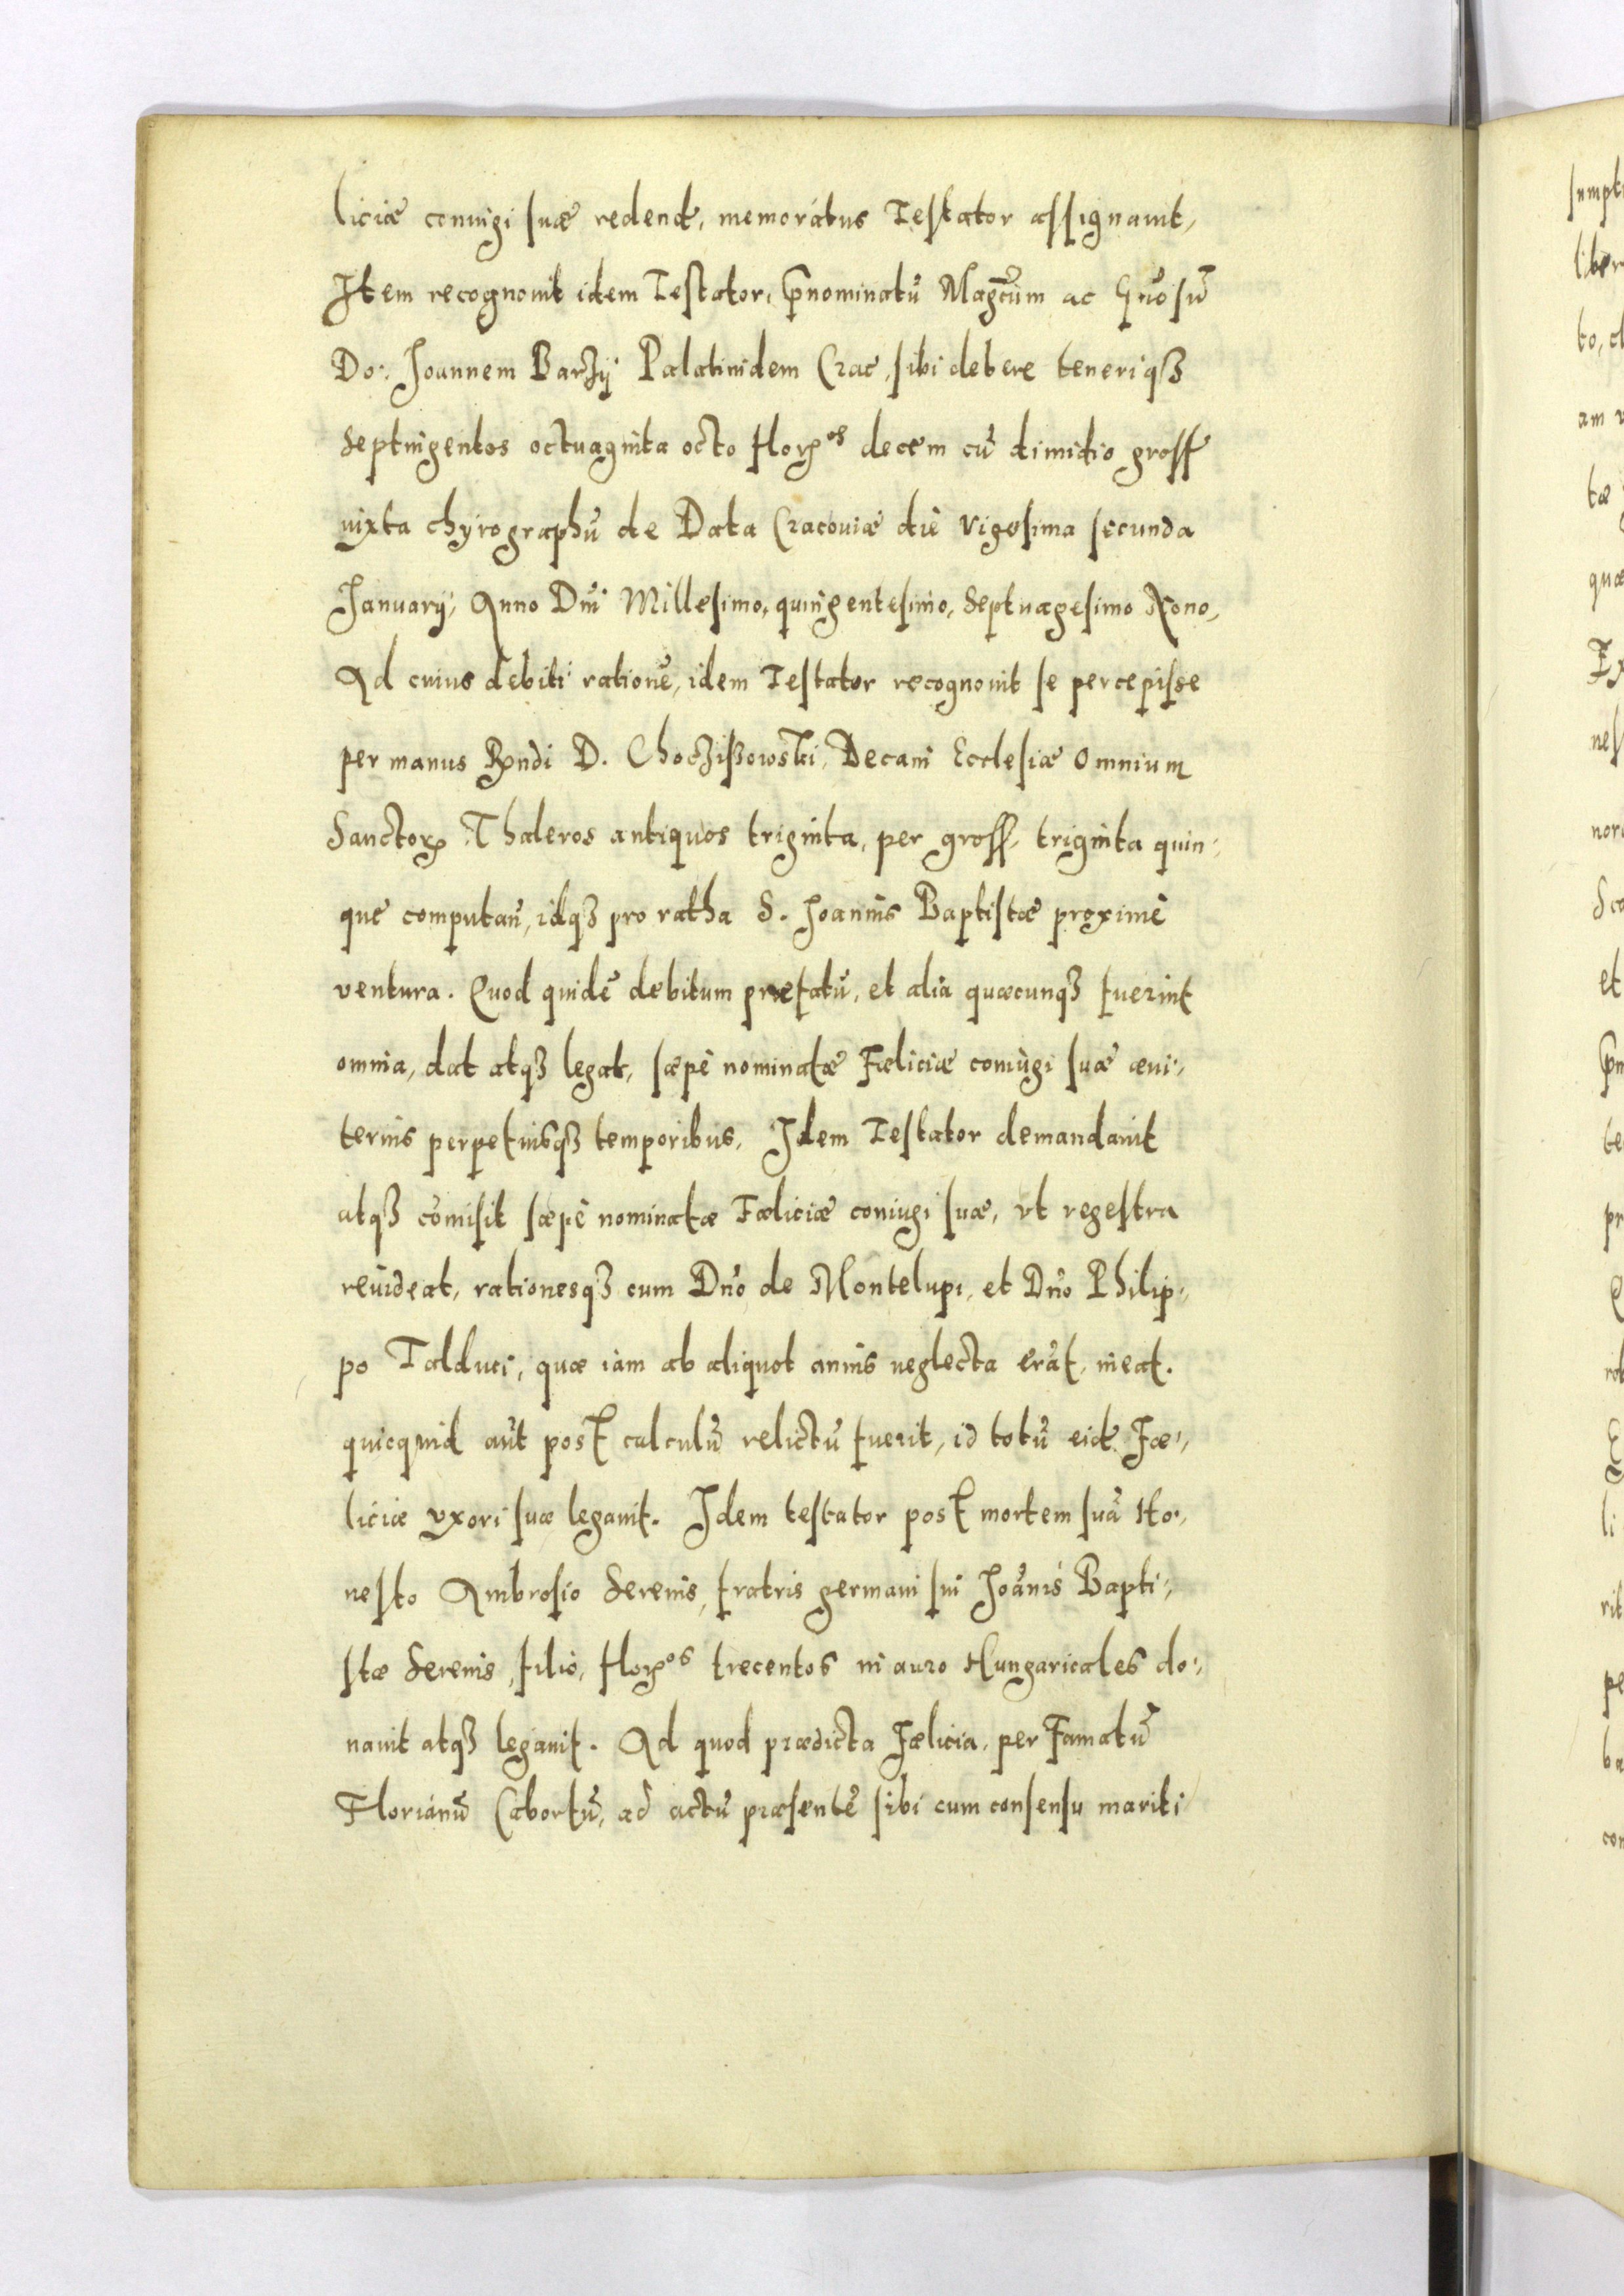 liciæ coniugi suæ redend, memoratus Testator assignauit,
Item recognouit idem Testator, pnominatū Magcum ac Gnosū
Do: Joannem Barzij Palatinidem Crac, sibi debere teneriqȝ
Septingentos octuaginta octo florꝭos decem cū dimidio gross
iuxta chyrographū de Data Cracouiæ die Vigesima secunda
Januarij, Anno Dni Millesimo, quingentesimo, Septuagesimo Nono,
Ad cuius debiti rationē, idem Testator recognouit se percepisse
per manus Rndi D. Choczissowski, Decani Ecclesiæ Omnium
Sanctorꝝ Thaleros antiquos triginta, per gross, triginta quin:
que computan, idqȝ pro ratha S. Joannis Baptistæ proximè
ventura. Quod quidē debitum præfatū, et alia quæcunqȝ fuerint
omnia, dat atqȝ legat, sæpè nominatæ Fæliciæ coniugi suæ æui:
ternis perpetuisqȝ temporibus. Idem Testator demandauit
atqȝ cōmisit sæpè nominatæ Fæliciæ coniugi suæ, vt regestra
reuideat, rationesqȝ cum Dno de Montelupi, et Dno Philip:
po Talduci, quæ iam ab aliquot annis neglecta erāt, ineat.
quicquid aūt post calculū relictū fuerit, id totū eid Fæ:
liciæ vxori suæ legauit. Idem testator post mortem suā Ho:
nesto Ambrosio Serenis, fratris germani sui Joānis Bapti:
stæ Serenis, filio, florꝭos trecentos in auro Hungaricales do:
nauit atqȝ legauit. Ad quod prædicta Fælicia, per Famatū
Florianū Cabortū, ad actū præsentē sibi cum consensu mariti